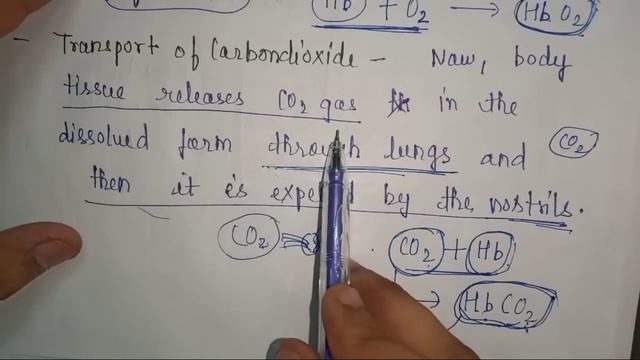 Hb + O2 → HbO2
- Transport of Carbondioxide - Now, body
tissue releases CO2 gas in the
dissolved form through lungs and CO2
then it is by the nostrils.
CO2 CO2 + Hb
→ HbCO2